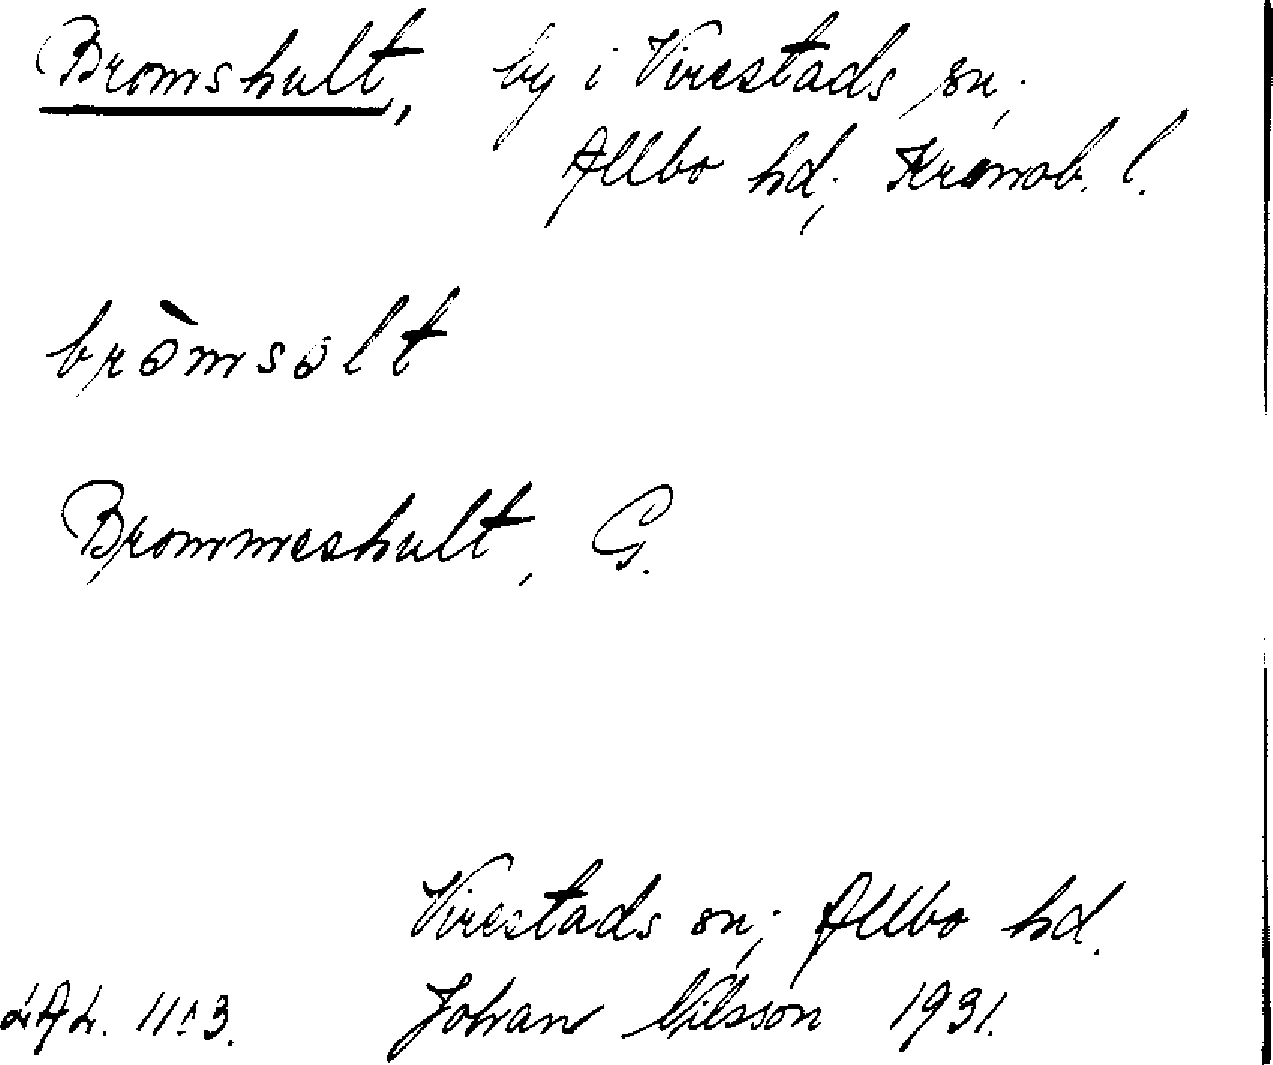 Bromshult, by i Virestads sn;
Allbo hd; Kronob. l.
bròmsolt
Brommeshult, G.
Virestads sn; Allbo hd.
Johan Nilsson 1931.